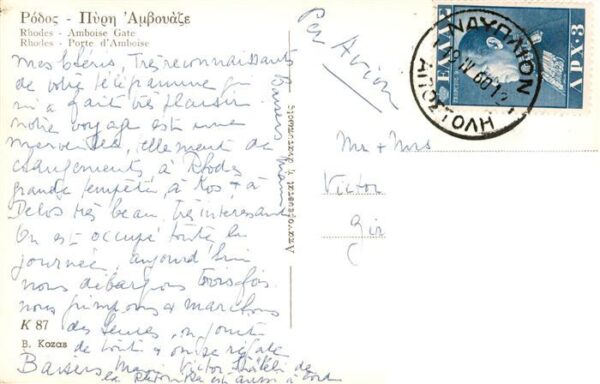 Ρόδος - Πύρη Ἀμβουάζε
Rhodes - Amboise Gate
Rhodes - Porte d'Amboise
mes chéris, très reconnaissants
de votre télégramme qui
m'a fait très plaisir
notre voyage est une
merveille, tellement de
changements, à Rhodes
grande tempête, à Kos + à
Delos très beau, très intéressant
On est occupé toute la
journée, aujourd'hui
nous débarquons trois fois
nous grimpons & marchons
des heures, on jouit
de tout & on se régale
Baisers Victor
la est aussi à bord
Baisers
K 87
B. Kozas
Par Avion
ΕΛΛΑΣ
ΔΡΧ. 3
ΝΑΥΠΛΙΟΝ
ΑΠΟΣΤΟΛΗ
9 IV 60
Mr & Mrs
Victor